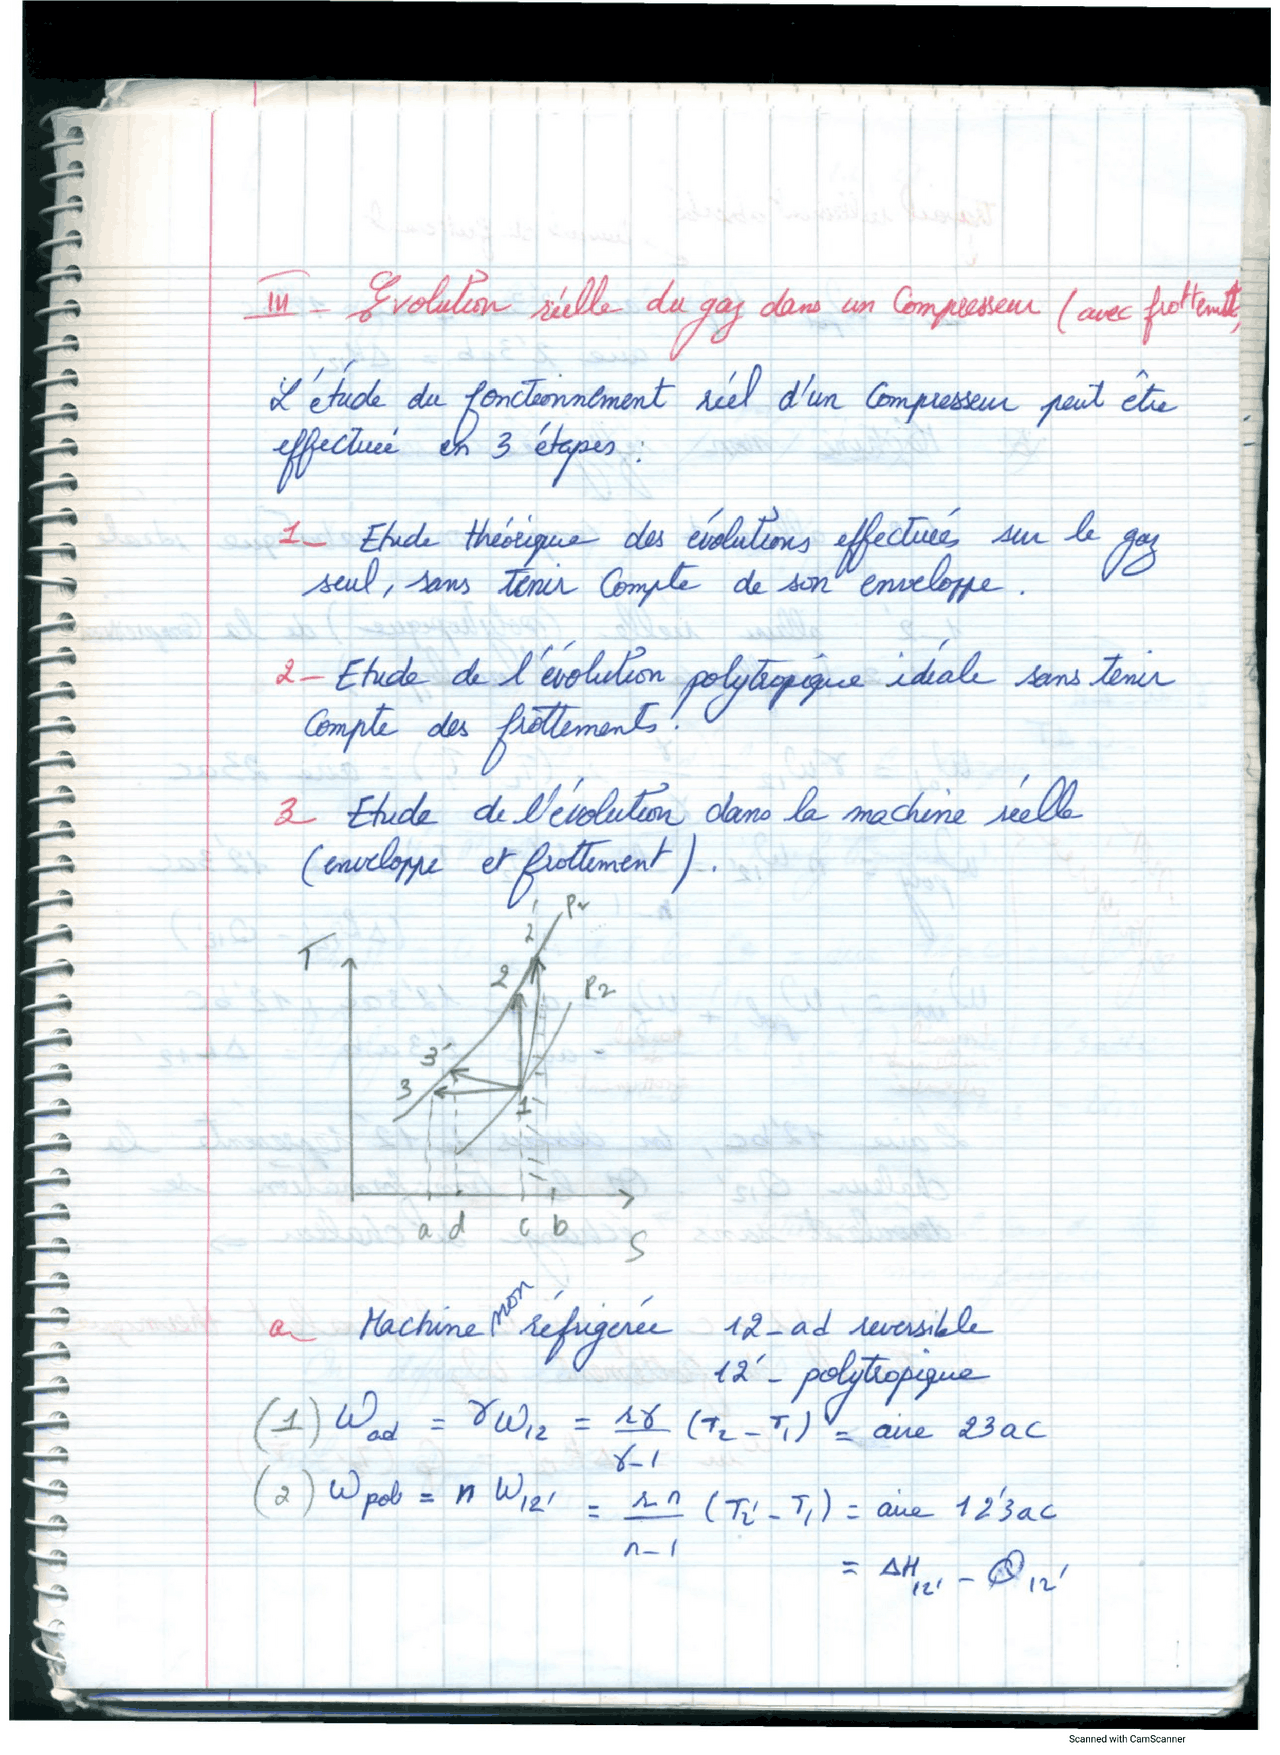 III - Evolution réelle du gaz dans un Compresseur (avec frottements)
L'étude du fonctionnement réel d'un Compresseur peut être
effectuée en 3 étapes :
1- Etude théorique des évolutions effectuées sur le gaz
seul, sans tenir Compte de son enveloppe.
2- Etude de l'évolution polytropique idéale sans tenir
Compte des frottements.
3 Etude de l'évolution dans la machine réelle
(enveloppe et frottement).
T
2'
P2
2
P2
3'
3
1
a d c b
S
a- Machine non réfrigérée 12-ad reversible
12'- polytropique
(1) Wad = γW12 = rγ/γ-1 (T2 - T1) = aire 23ac
(2) Wpol = n W12' = rn/n-1 (T2' - T1) = aire 12'3ac
= ΔH12' - Q12'
Scanned with CamScanner